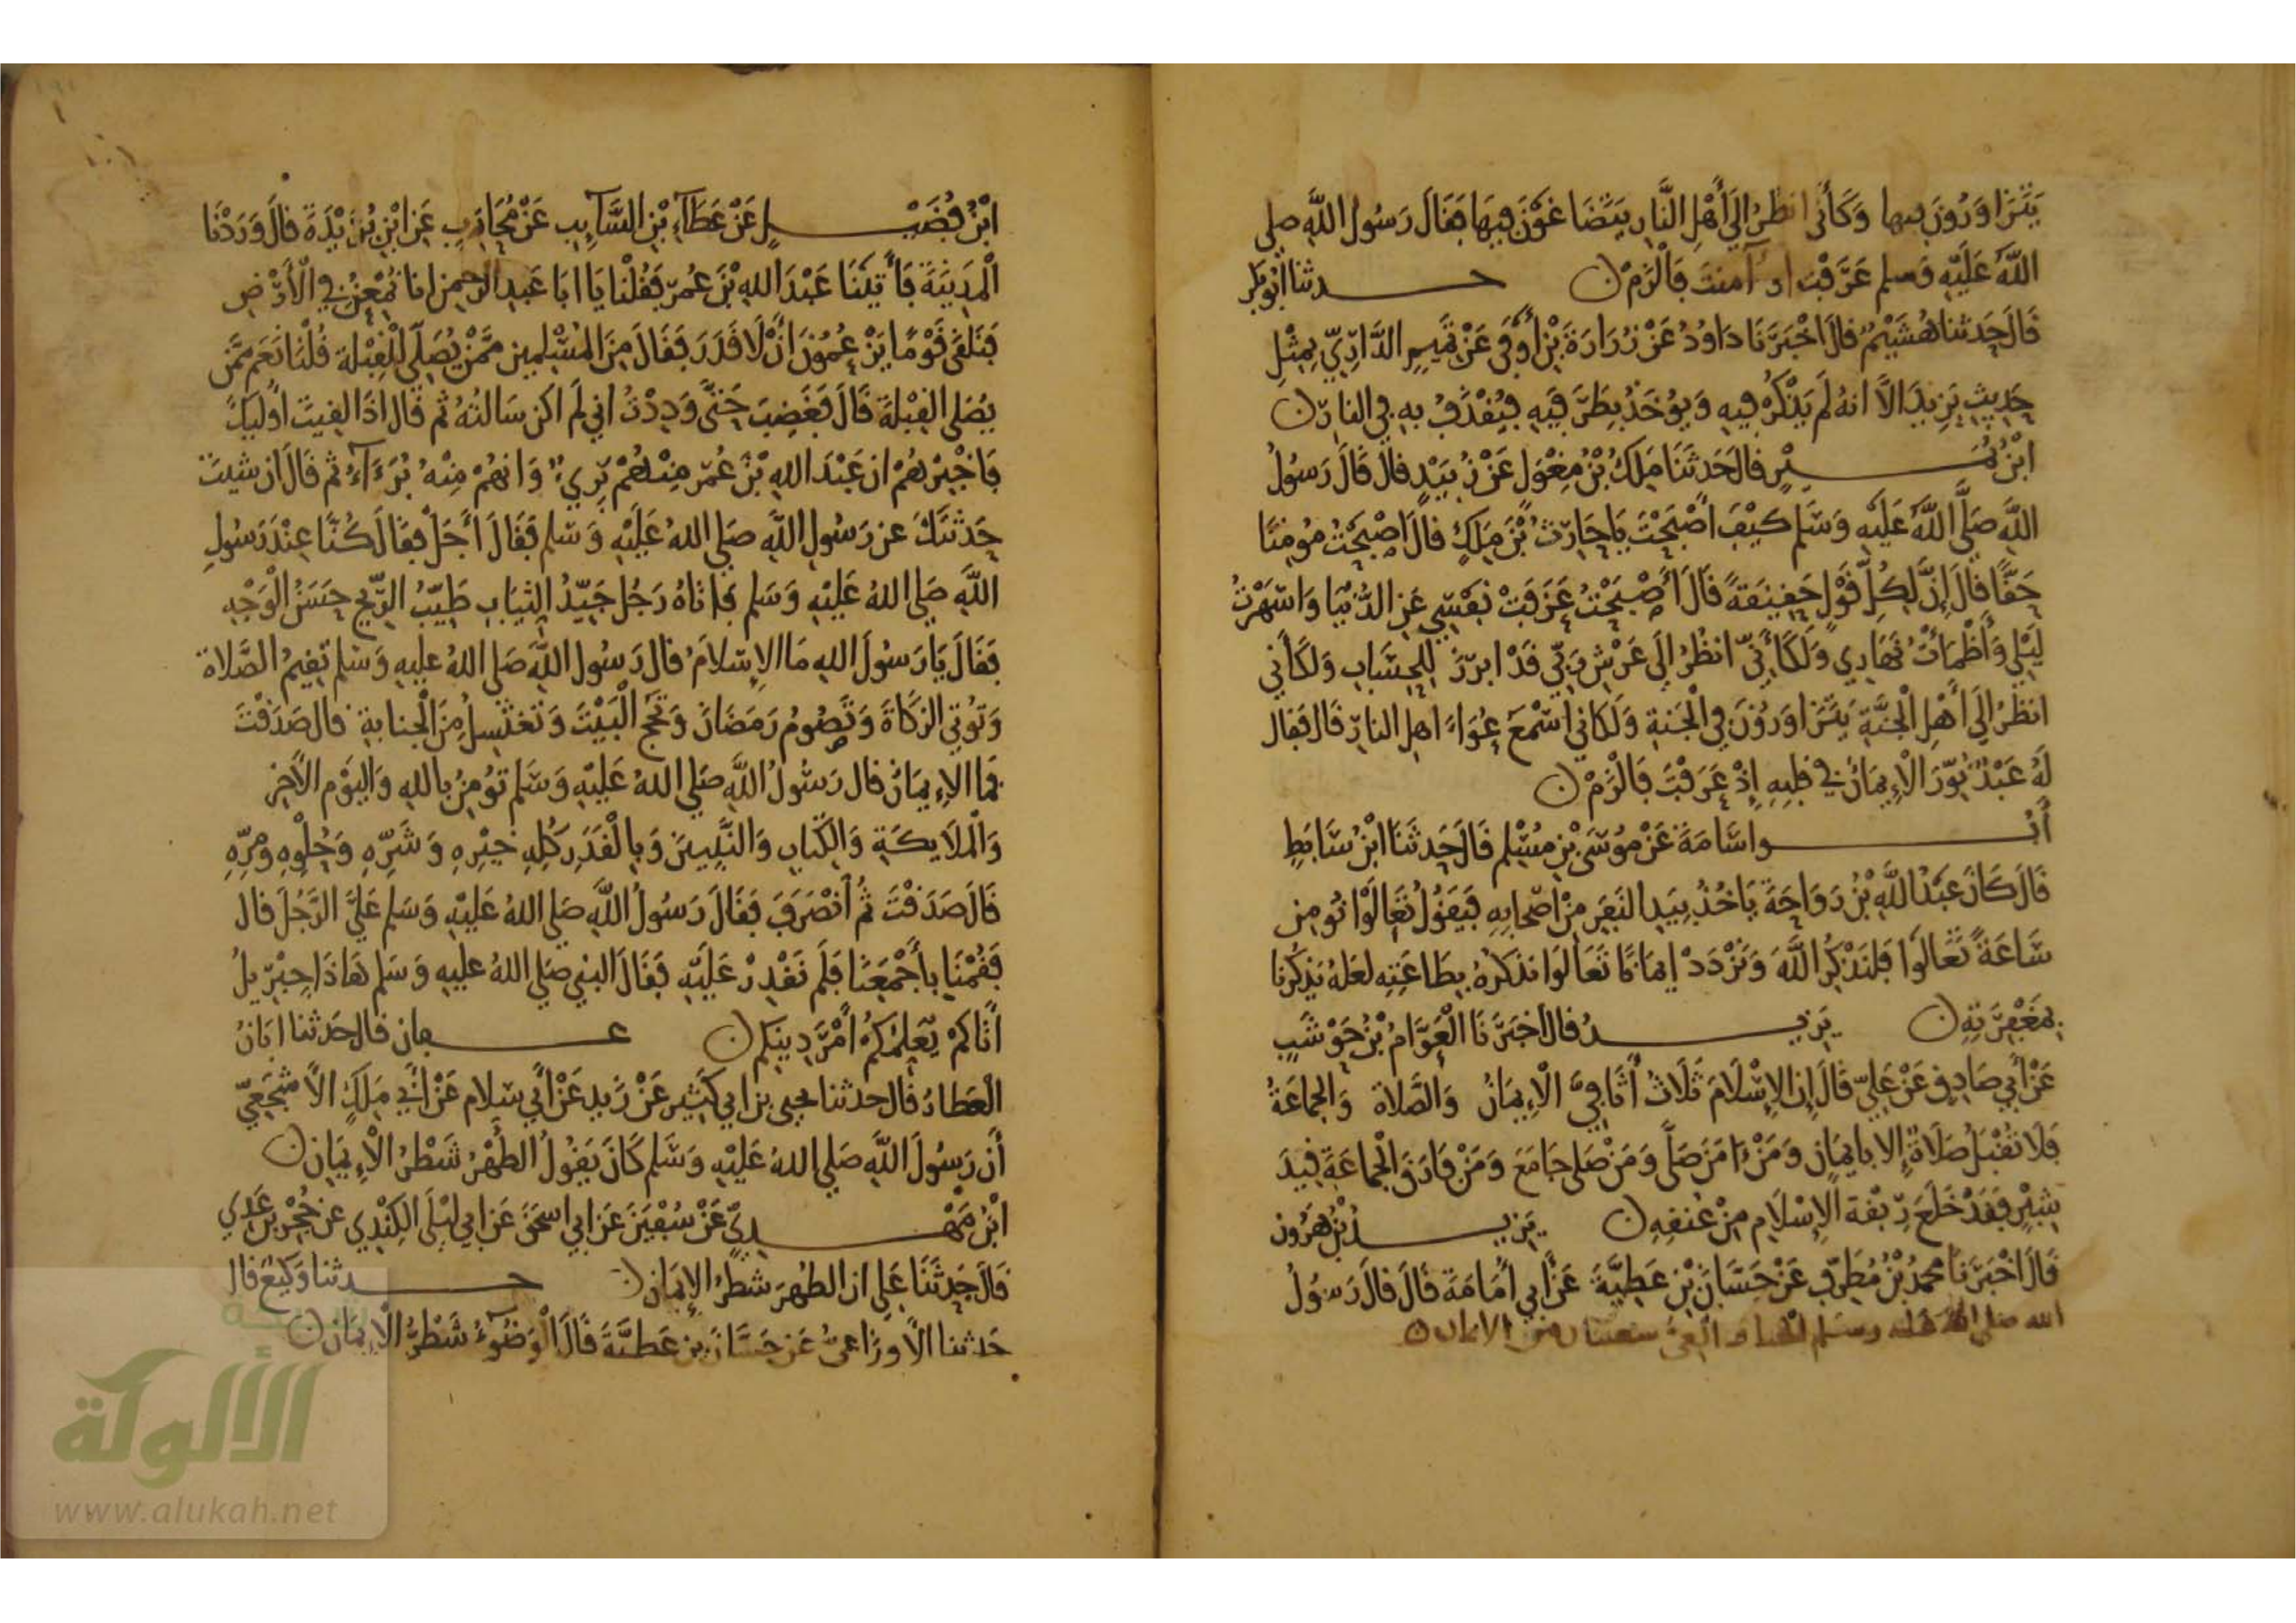 يَتَزَاوَرُونَ فيها وَكَأَني انظُرُ إِلَى أَهْلِ النَّارِ يَتَضَاغَوْنَ فِيهَا فَقَالَ رَسُولُ اللَّهِ صلى
اللَّهُ عَلَيْهِ وَسلم عَرَفْتَ أو آمنتَ فَالْزَمْ ن حدثنا أبو بكر
قَالَ حَدثنا هُشَيْمٌ قالَ اخْبَرَنَا دَاوُدُ عَنْ زُرَارَةَ بْنِ أَوْفَى عَنْ تَمِيمِ الدَّارِيِّ بِمِثْلِ
حَدِيثِ يَزِيدَ الاَّ انهُ لَمْ يَذْكُرْ فِيهِ وَيُؤخَذُ بِطَرَفَيْهِ فَيُقْذَفُ بِهِ فِي النارِ ن
ابْنُ نُمَيْرٍ قالَ حَدثَنَا مَلِكُ بْنُ مِغْوَلٍ عَنْ زُبَيْدٍ قالَ قَالَ رَسُولُ
اللَّهِ صَلَّى اللَّهُ عَلَيْهِ وَسَلَّم كَيْفَ اصْبَحْتَ يَا حَارِثُ بْنَ مَلِكٍ قالَ اصْبَحْتُ مُومِنًا
حَقًّا قَالَ إِنَّ لِكُلِّ قَوْلٍ حَقِيقَةً قَالَ أَصْبَحْتُ عَزَفَتْ نَفْسِي عَنِ الدُّنْيَا وَاسْهَرْتُ
لَيْلِي وَأَظْمَأْتُ نَهَارِي وَلَكَأَنِّي انظُرُ إِلَى عَرْشِ رَبِّي قَدْ ابرزَ لِلْحِسَابِ وَلَكَأَنِي
انظُرُ إِلَى أَهْلِ الْجَنَّةِ يَتَزَاوَرُونَ فِي الْجَنةِ وَلَكَاني اسْمَعُ عُوَاءَ اهلِ النارِ قَالَ فَقال
لَهُ عَبْدٌ نَوَّرَ الْإِيمَانَ فِي قلبِهِ إِذْ عَرَفْتَ فَالْزَمْ ن
أَبُو اسَامَةَ عَنْ مُوسَى بْنِ مُسْلِم قَالَ حَدثَنَا ابْنُ سَابَطٍ
قَالَ كَانَ عَبْدُ اللَّهِ بْنُ رَوَاحَةَ يَاخُذُ بِيَدِ النَفَرِ مِنْ اصْحابِهِ فَيَقُولُ تَعَالَوْا نُومِن
سَاعَةً تَعَالَوْا فَلِنَذْكُرِ اللَّهَ وَنَزْدَدْ إيمَانًا تَعَالَوا نذكرهُ بِطَاعَتِهِ لعَلهُ يَذكُرنا
بمَغْفِرَتِهِ ن يَزِيدُ قالَ اخبَرَنَا الْعَوَّامُ بْنُ حَوْشَبٍ
عَنْ أَبِي صَادِقٍ عَنْ عَلِيٍّ قَالَ إِن الْإِسْلَامَ ثَلَاثُ أَثَافِيَّ الْإِيمَانُ وَالصَّلاةُ وَالْجَمَاعَةُ
فَلَا تُقْبَلُ صَلَاةٌ إِلا بايمَانٍ وَمَنْ ءَامَنَ صَلَّى وَمَنْ صَلى جَامَعَ وَمَنْ فَارَقَ الْجَمَاعَةَ قِيدَ
شِبْرٍ فَقَدْ خَلَعَ رِبْقَةَ الْإِسْلَامِ مِنْ عُنقِهِ ن يَزِيدُ بْنُ هَرُون
قَالَ اخْبَرَنَا محمدُ بْنُ مُطَرِّفٍ عَنْ حَسَّانَ بْنِ عَطِيَّةَ عَنْ أَبِي أُمَامَةَ قَالَ قالَ رَسُولُ
الله صلى الله عليه وسلم الحيا والعي شعبتان من الايمان ن
ابْنُ فُضَيْلٍ عَنْ عَطَاءِ بْنِ السَّايِبِ عَنْ مُحَارِبٍ عَنِ ابْنِ بُرَيْدَةَ قَالَ وَرَدْنَا
الْمَدِينَةَ فَأَتَيْنَا عَبْدَ اللهِ بْنَ عُمَرَ فَقُلْنَا يَا ابَا عَبدِ الرحمن انا نُمْعِنُ في الْأَرْضِ
فَنَلقَى قَوْمًا يَزْعُمُونَ انْ لَا قَدَرَ فَقَالَ مِنَ الْمُسْلِمِينَ مِمَّنْ يُصَلِّي لِلْقِبْلَةِ قُلْنَا نَعَم مِمَّن
يُصَلي القِبْلَةَ قَالَ فَغَضِبَ حَتَّى وَدِدْتُ اني لَم اكن سَالتُهُ ثُم قَالَ اذَا لقِيتَ اولَيِكَ
فَاخْبِرْهُمْ ان عَبْدَ اللهِ بْنَ عُمَرَ مِنْهُمْ بَرِيءٌ وَانهُمْ مِنْهُ بُرَءَاءُ ثُم قَالَ ان شيتَ
حَدثتكَ عن رَسُولِ اللَّهِ صَلى اللهُ عَلَيْهِ وَسَلم فَقَالَ أَجَلْ فَقَالَ كُنَّا عِنْدَ رَسُولِ
اللَّهِ صَلى اللهُ عَلَيْهِ وَسَلم فَاتَاهُ رَجُل جَيِّدُ الثِيَابِ طَيِّبُ الرِّيحِ حَسَنُ الْوَجْهِ
فَقَالَ يَا رَسُولَ اللهِ مَا الْإِسْلَامُ قال رَسُول اللَّهِ صَلى اللهُ عليه وَسَلم تقِيمُ الصَّلاةَ
وَتُوتِي الزكَاةَ وَتَصُومُ رَمَضَانَ وَتَحُج الْبَيْتَ وَتَغتَسِلُ مِنَ الْجَنابةِ قالَ صَدَقْتَ
فمَا الْإِيمَانُ قال رَسُولُ اللَّهِ صَلى اللهُ عَلَيْهِ وَسَلم تُومِنُ باللهِ وَاليَوْمِ الْآخِرِ
وَالْمَلَايِكَةِ وَالْكِتَابِ وَالنَّبِيينَ وَبِالْقَدَرِ كُلِهِ خَيْرِهِ وَشَرِّهِ وَحُلْوِهِ وَمُرِّهِ
قَالَ صَدَقْتَ ثُم انْصَرَفَ فَقَالَ رَسُولُ اللَّهِ صَلى اللهُ عَلَيْهِ وَسَلم عَلَيَّ الرَّجُلَ قال
فَقُمْنَا بأَجْمَعِنَا فَلَم نَقْدِرْ عَلَيْهِ فَقَالَ النبِي صَلى اللهُ عليهِ وَسَلم هَاذَا جِبْرِيلُ
أَتَاكُمْ يُعَلِمُكُمْ أَمْرَ دِينِكم ن عفان قال حَدثنا ابَانُ
الْعَطارُ قال حدثنا يحيى بن ابي كَثِيرٍ عَنْ زَيدٍ عَنْ أَبِي سَلام عَنْ أَبِي مَلِكٍ الاشجَعيّ
أَن رَسُولَ اللَّهِ صَلى اللهُ عَلَيْهِ وَسَلم كَانَ يَقُولُ الطُّهْرُ شَطْرُ الْإِيمَانِ ن
ابْنُ مَهْدِيٍّ عَنْ سُفْيَنَ عَن ابي اسحَقَ عَن ابي لَيْلَى الكِنْدِي عن حُجْرِ بن عَدِي
قَالَ حَدَثَنَا عَلي ان الطهرَ شَطْرُ الْإِيمَانِ ن حدثنا وَكِيعٌ قال
حَدثنا الْأَوزَاعيُّ عَن حَسَّانَ بن عَطيَّةَ قَالَ الْوَضُوءُ شَطْرُ الْإِيمَانِ ن
شبكة
الألوكة
www.alukah.net